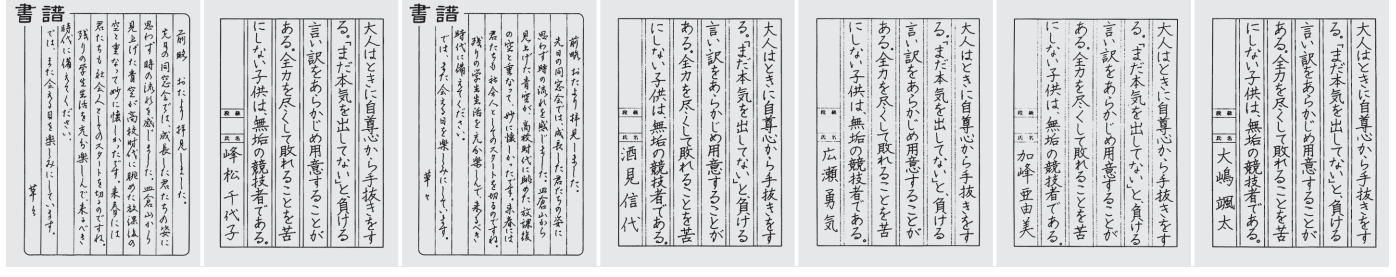 書譜
前略 おたより拝見しました。
先日の同窓会では、成長した君たちの姿に
思わず時の流れを感じました。皿倉山から
見上げた青空が高校時代に眺めた放課後の
空と重なって妙に懐しかったです。来春には
君たちも社会人としてのスタートを切るのですね。
残りの学生生活を充分楽しんで、来るべき
時代に備えてください。
では、また会える日を楽しみにしています。
草々
大人はときに自尊心から手抜きをす
る。「まだ本気を出してない」と、負ける
言い訳をあらかじめ用意することが
ある。全力を尽くして敗れることを苦
にしない子供は、無垢の競技者である。
段級 氏名 峰松千代子
書譜
前略 おたより拝見しました。
先日の同窓会では、成長した君たちの姿に
思わず時の流れを感じました。皿倉山から
見上げた青空が高校時代に眺めた放課後
の空と重なって、妙に懐しかったです。来春には
君たちも社会人としてのスタートを切るのですね。
残りの学生生活を充分楽しんで、来るべき
時代に備えてください。
では、また会える日を楽しみにしています。
草々
大人はときに自尊心から手抜きをす
る。「まだ本気を出してない」と、負ける
言い訳をあらかじめ用意することが
ある。全力を尽くして敗れることを苦
にしない子供は、無垢の競技者である。
段級 氏名 酒見信代
大人はときに自尊心から手抜きをす
る。「まだ本気を出してない」と、負ける
言い訳をあらかじめ用意することが
ある。全力を尽くして敗れることを苦
にしない子供は、無垢の競技者である。
段級 氏名 広瀬勇気
大人はときに自尊心から手抜きをす
る。「まだ本気を出してない」と、負ける
言い訳をあらかじめ用意することが
ある。全力を尽くして敗れることを苦
にしない子供は、無垢の競技者である。
段級 氏名 加峰亜由美
大人はときに自尊心から手抜きをす
る。「まだ本気を出してない」と、負ける
言い訳をあらかじめ用意することが
ある。全力を尽くして敗れることを苦
にしない子供は、無垢の競技者である。
段級 氏名 大嶋颯太